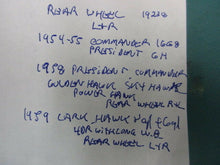 REAR WHEEL 19228
L+R
1954-55 COMMANDER 16G8
PRESIDENT 6H
1958 PRESIDENT COMMANDER
GOLDEN HAWK SKY HAWK
POWER HAWK
REAR WHEEL R+L
1959 LARK HAWK 6cyl
4DR WITH LONG W.B
REAR WHEEL L+R